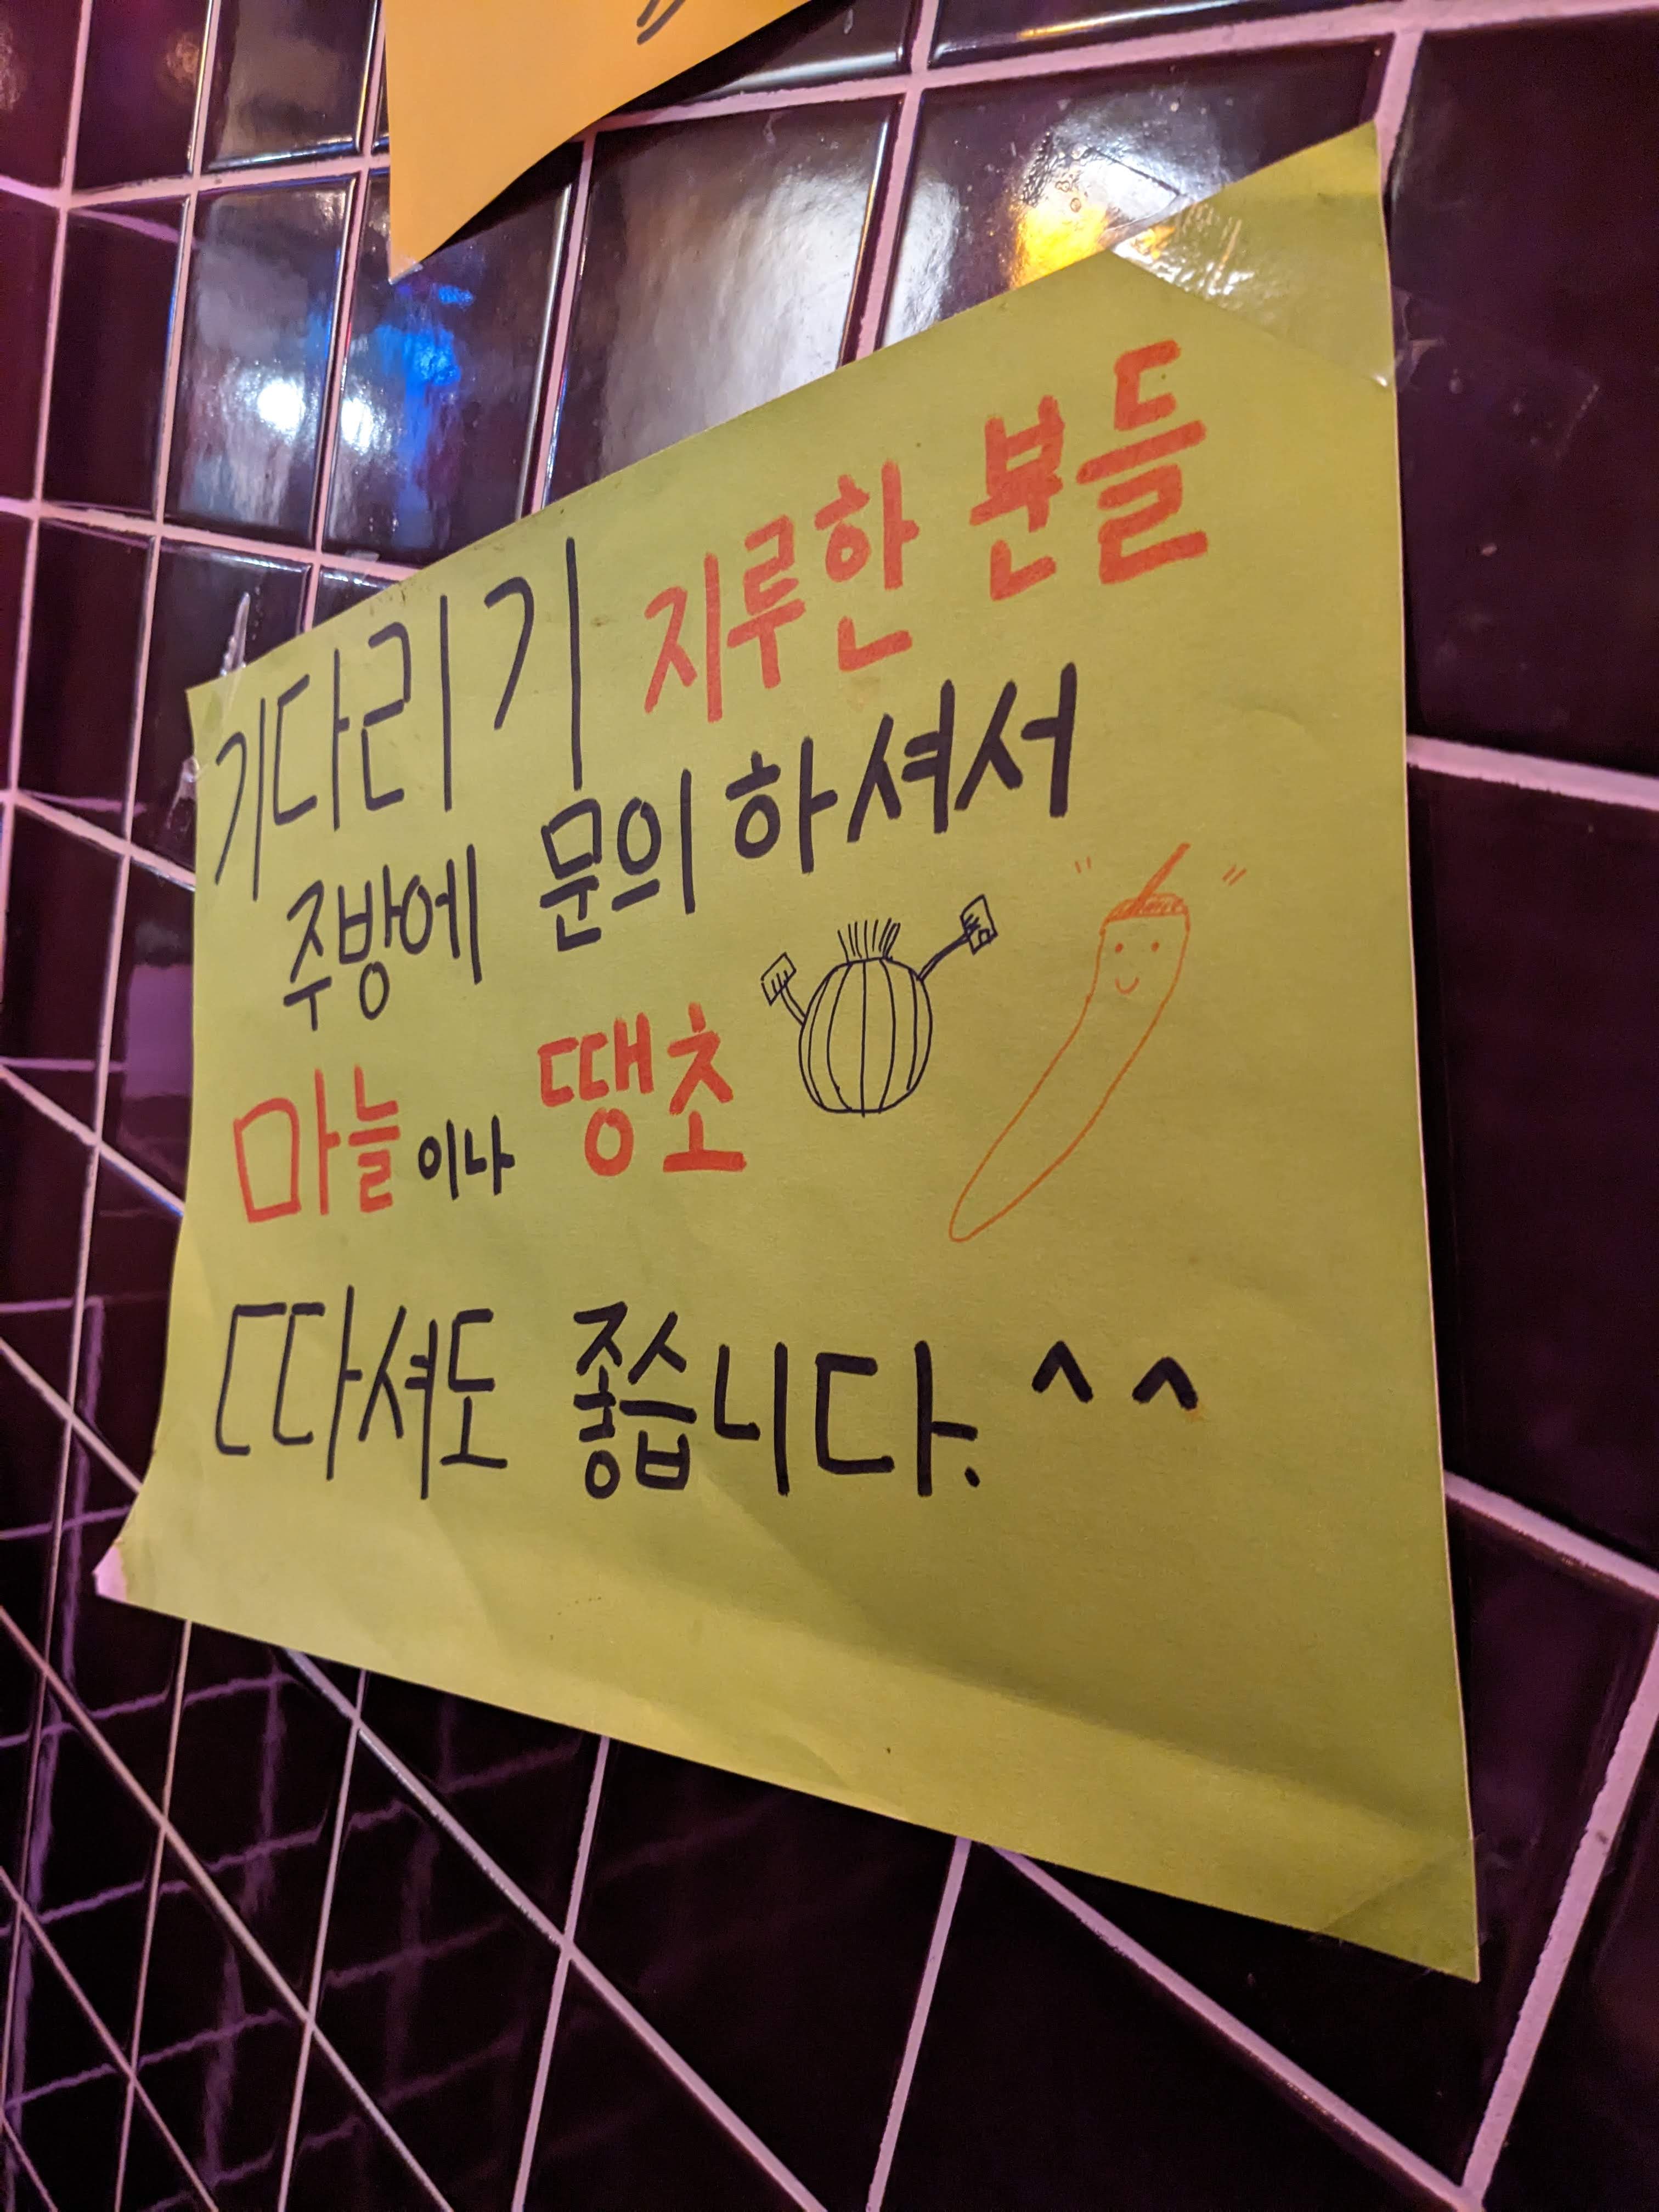 기다리기 지루한 분들
주방에 문의하셔서
마늘이나 땡초
따셔도 좋습니다. ^^